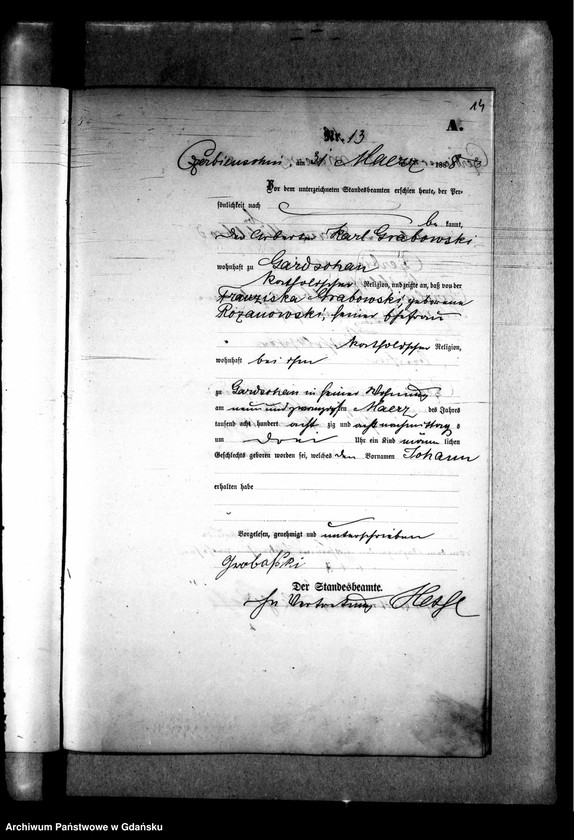 14
A.
Nr. 13
Czerbienschin, am 31 Maerz 1888
Vor dem unterzeichneten Standesbeamten erschien heute, der Per-
sönlichkeit nach
be kannt,
der Arbeiter Karl Grabowski
wohnhaft zu Gardschau
katholischer Religion, und zeigte an, daß von der
Franziska Grabowski, geborene
Rozanowski, seiner Ehefrau
katholischer Religion,
wohnhaft bei ihm
zu Gardschau in seiner Wohnung
am neun und zwanzigsten Maerz des Jahres
tausend acht hundert acht zig und acht nachmittags
um drei Uhr ein Kind männ lichen
Geschlechts geboren worden sei, welches den Vornamen Johann
erhalten habe
Vorgelesen, genehmigt und unterschrieben
Der Standesbeamte.
In Vertretung
Archiwum Państwowe w Gdańsku